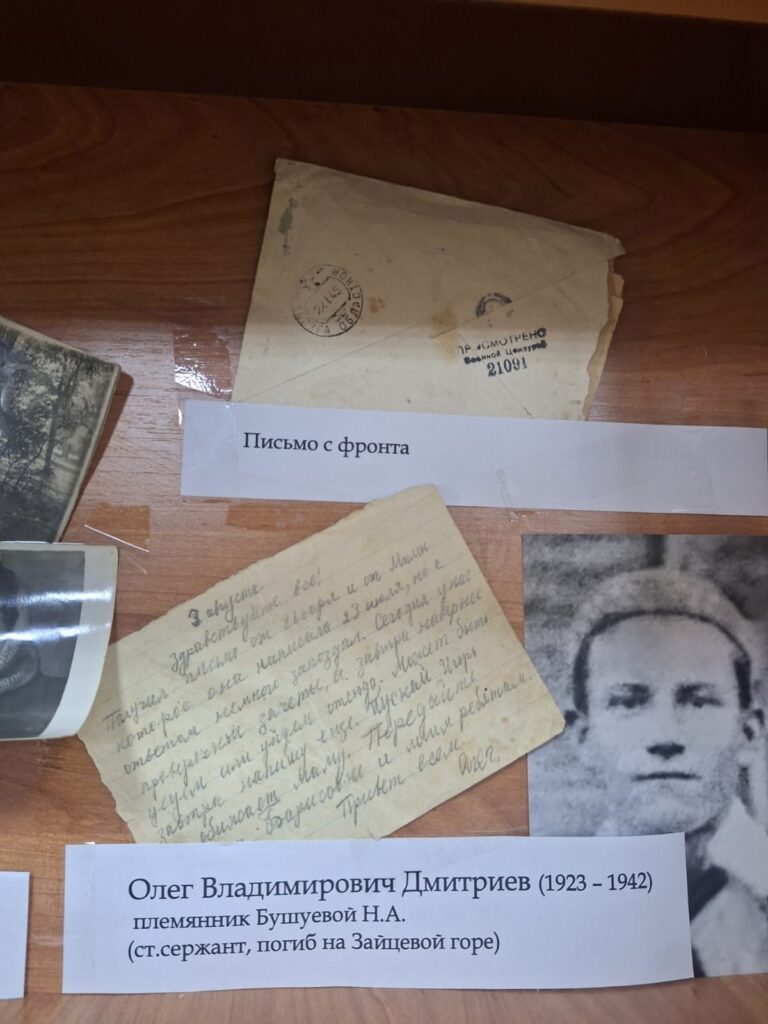 2 1 45
ОБЛАСТНОЙ
ПРОСМОТРЕНО
Военной Цензурой
21091
Письмо с фронта
3 августа.
Здравствуйте все!
Получил письмо от Игоря и от Мили
которое она написала 23 июля, но с
ответом немного запоздал. Сегодня у нас
проверочный зачеты, а завтра наверное
уедем или уйдем отсюда. Может быть
завтра напишу еще. Пускай Игорь
обнимает Маму. Передайте
Барисовне и моим ребятам.
Привет всем.
Олег.
Олег Владимирович Дмитриев (1923 – 1942)
племянник Бушуевой Н.А.
(ст.сержант, погиб на Зайцевой горе)